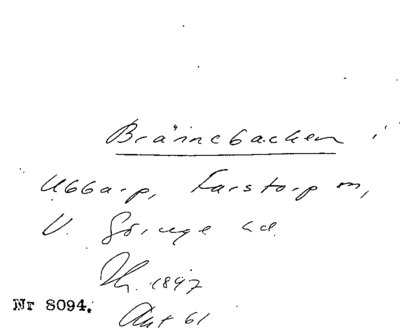 Brännebacken i
Ubbarp, Farstorp sn,
V. Göinge hd.
Th. 1897
Nr 8094.
Akt 61